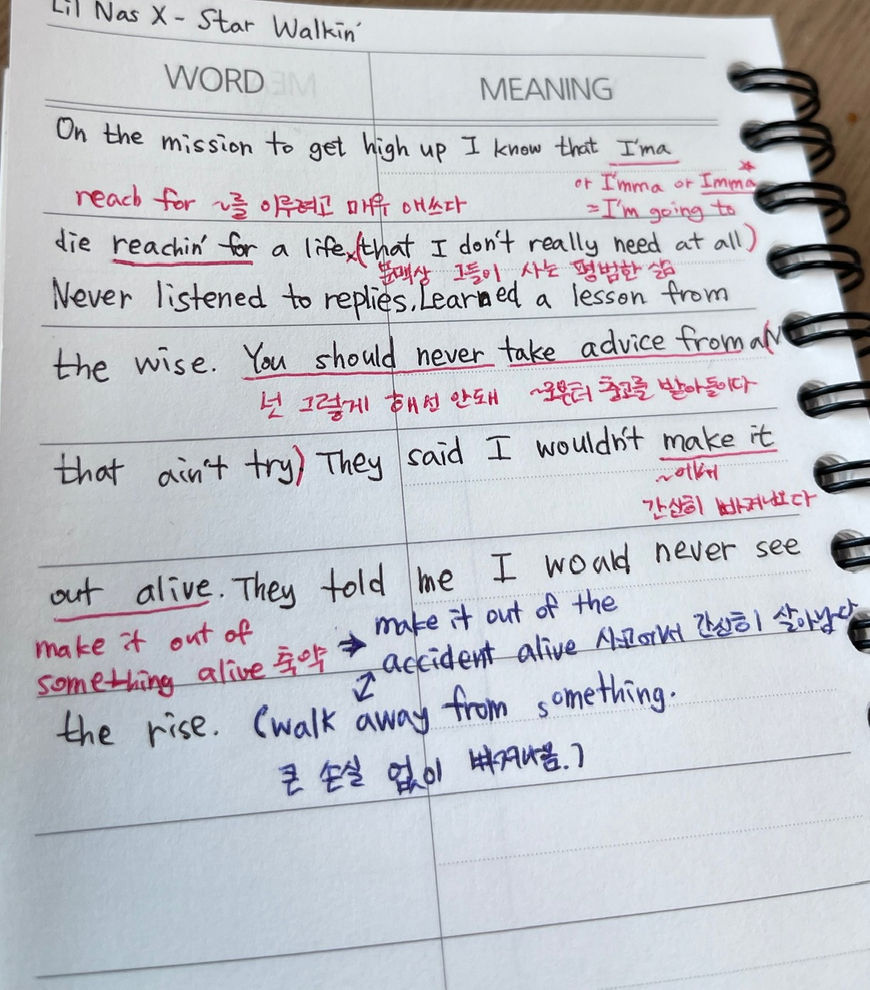 Lil Nas X - Star Walkin'
WORD MEANING
On the mission to get high up I know that I'ma
or I'mma or Imma
reach for ~를 이루려고 매우 애쓰다
=I'm going to
die reachin' for a life (that I don't really need at all)
문맥상 그들이 사는 평범한 삶
Never listened to replies. Learned a lesson from
the wise. You should never take advice from a(N
넌 그렇게 해선 안돼 ~로부터 충고를 받아들이다
that ain't try) They said I wouldn't make it
~에서
간신히 빠져나오다
out alive. They told me I would never see
make it out of
something alive 축약 → make it out of the
accident alive 사고에서 간신히 살아남다
the rise. (walk away from something.
큰 손실 없이 빠져나옴.)